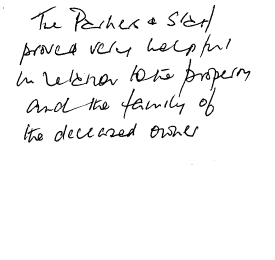 The Partners & Staff
proved very helpful
in relation to the property
and the family of
the deceased owner